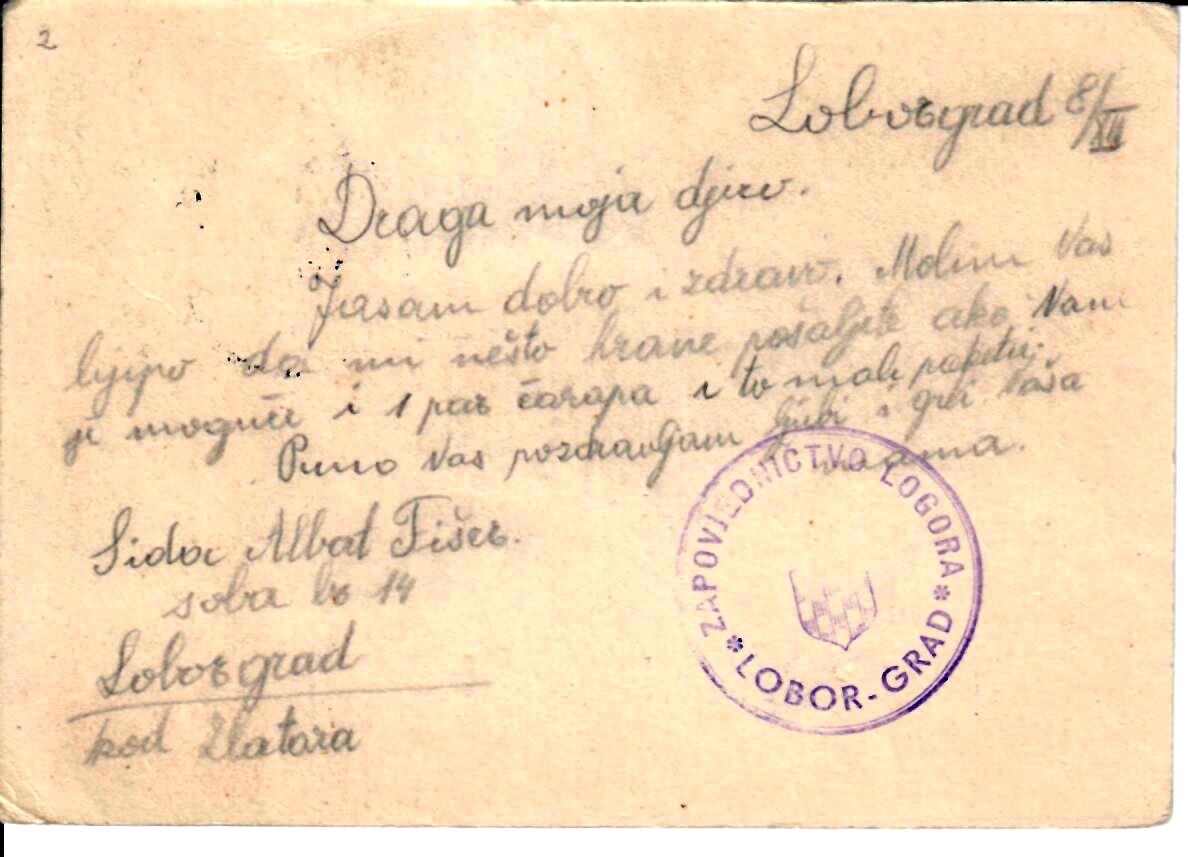 2
Loborgrad 8/XII
Draga moja djeco.
Ja sam dobro i zdravo. Molim Vas
lijepo da mi nešto hrane pošaljete ako Vam
je moguće i 1 par čarapa i to mali paketić.
Puno Vas pozdravljam ljubi i grli Vaša
mama.
Sida Albat Fišer.
soba br 14
Loborgrad
kod Zlatara
ZAPOVJEDNICTVO LOGORA
* LOBOR-GRAD *